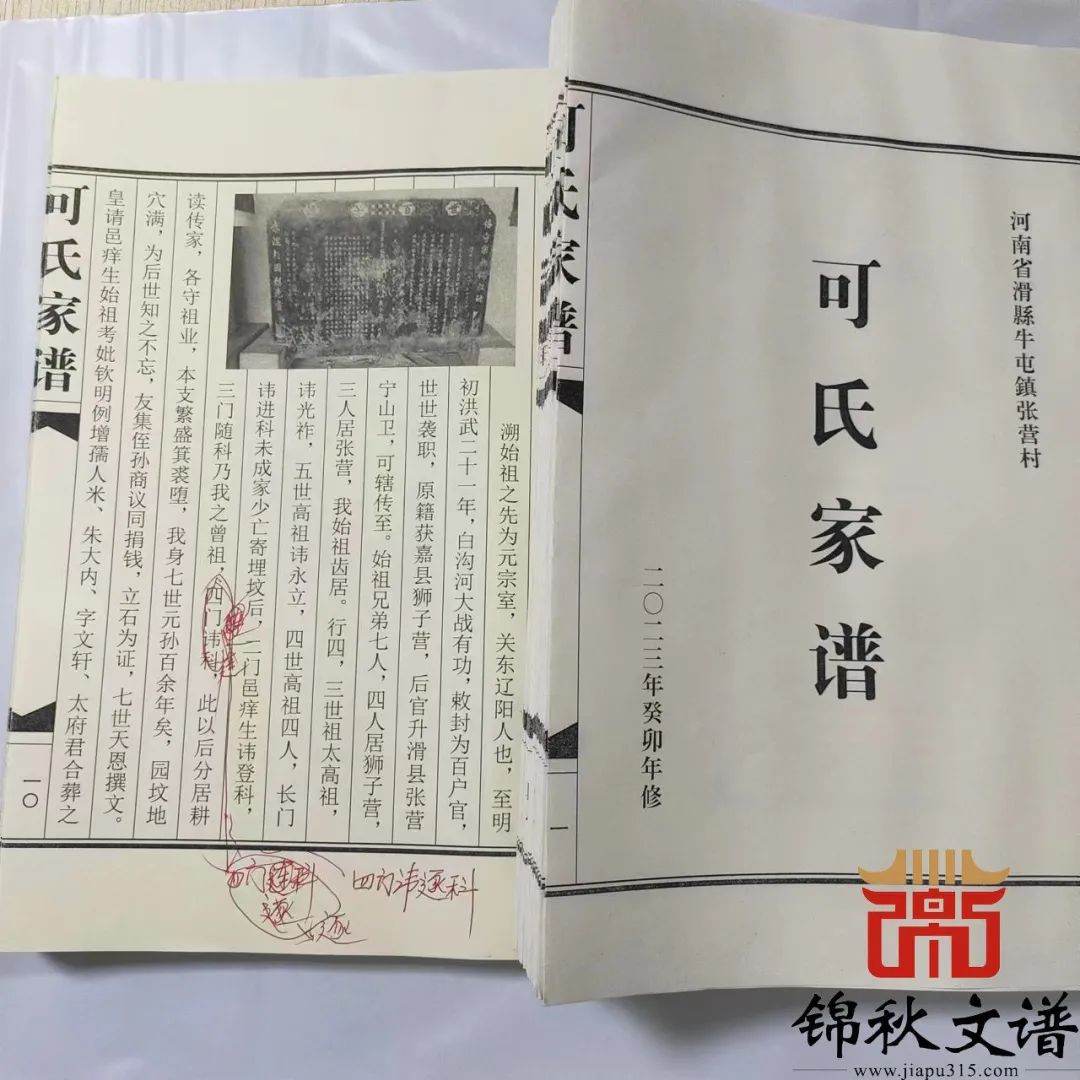 可氏家谱
溯始祖之先为元宗室，关东辽阳人也，至明
初洪武二十一年，白沟河大战有功，敕封为百户官，
世世袭职，原籍获嘉县狮子营，后官升滑县张营
宁山卫，可辖传至。始祖兄弟七人，四人居狮子营，
三人居张营，我始祖齿居。行四，三世祖太高祖，
讳光祚，五世高祖讳永立，四世高祖四人，长门
讳进科未成家少亡寄埋坟后，二门邑痒生讳登科，
三门随科乃我之曾祖，四门讳科，此以后分居耕
读传家，各守祖业，本支繁盛箕裘堕，我身七世元孙百余年矣，园坟地
穴满，为后世知之不忘，友集侄孙商议同捐钱，立石为证，七世天恩撰文。
皇请邑痒生始祖考妣钦明例增孺人米、朱大内、字文轩、太府君合葬之
一〇
四门
科
四门讳逐科
逐
可氏家谱
河南省滑縣牛屯鎮张营村
可氏家谱
二〇二三年癸卯年修
一
锦秋文谱
www.jiapu315.com